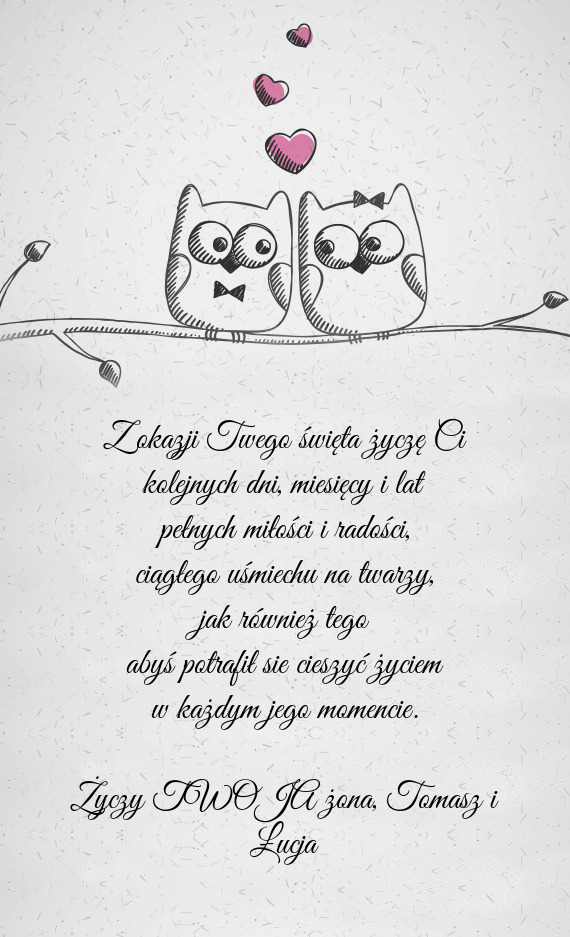 Z okazji Twego święta życzę Ci
kolejnych dni, miesięcy i lat
pełnych miłości i radości,
ciągłego uśmiechu na twarzy,
jak również tego
abyś potrafił sie cieszyć życiem
w każdym jego momencie.
Życzy TWOJA żona, Tomasz i
Łucja